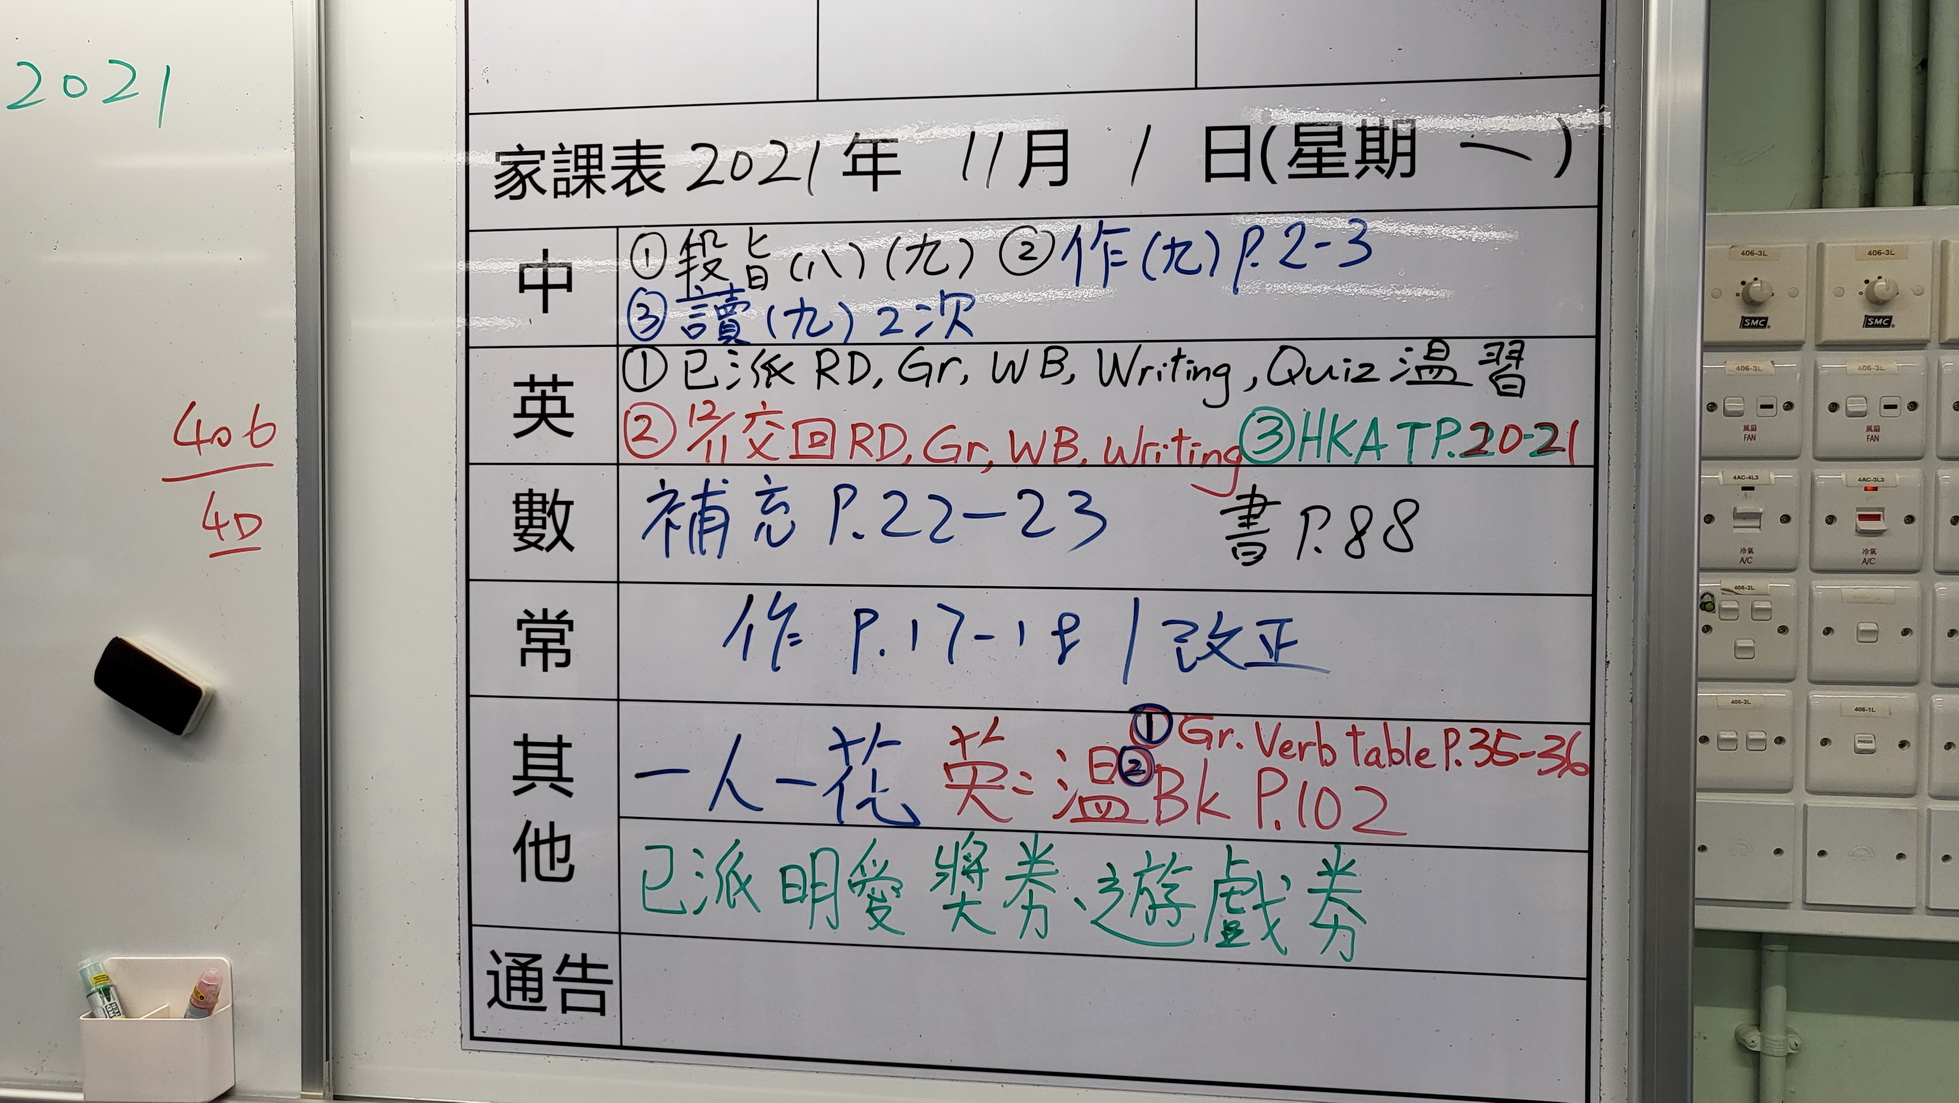 2021
406
4D
家課表 2021年 11月 1 日(星期 一)
中
①段旨(八)(九) ②作(九) P.2-3
③讀(九) 2次
英
①已派 RD, Gr, WB, Writing, Quiz 溫習
②12/11交回 RD, Gr, WB, Writing ③HKAT P.20-21
數
補充 P.22-23 書 P.88
常
作 P.17-18 / 改正
其他
一人一花 英: 溫 ① Gr. Verb table P.35-36
② Bk P.102
已派明愛獎券、遊戲券
通告
406-3L
406-3L
SMC
SMC
406-3L
406-3L
風扇
FAN
風扇
FAN
4AC-4L3
4AC-3L3
冷氣
A/C
冷氣
A/C
406-2L
406-2L
406-1L